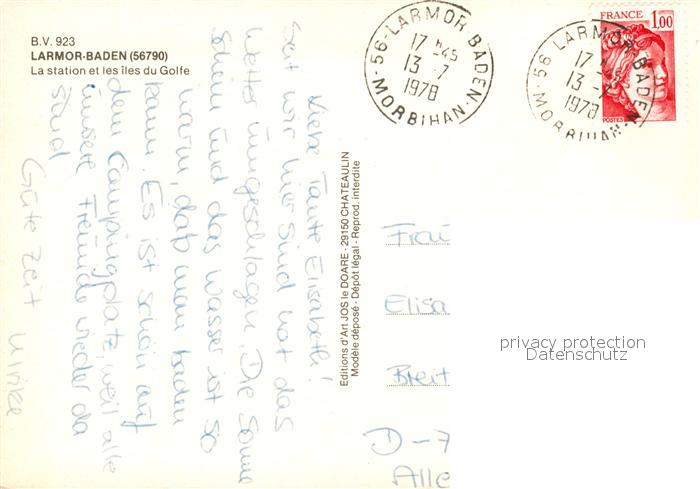 B.V. 923
LARMOR-BADEN (56790)
La station et les îles du Golfe
56-LARMOR BADEN-MORBIHAN
17 H45
13-7
1978
56 LARMOR BADEN-MORBIHAN
17
13-7
1978
FRANCE
1,00
POSTES
Liebe Tante Elisabeth!
Seit wir hier sind hat das
Wetter umgeschlagen. Die Sonne
scheint und das Wasser ist so
warm, daß man baden
kann. Es ist schön auf
dem Campingplatz, weil alle
unsere Freunde wieder da
sind
Gute Zeit Ulrike
Editions d'Art JOS le DOARE - 29150 CHATEAULIN
Modèle déposé - Dépôt légal - Reprod. interdite
Frau
Elisa
Breit
D-7
Alle
privacy protection
Datenschutz